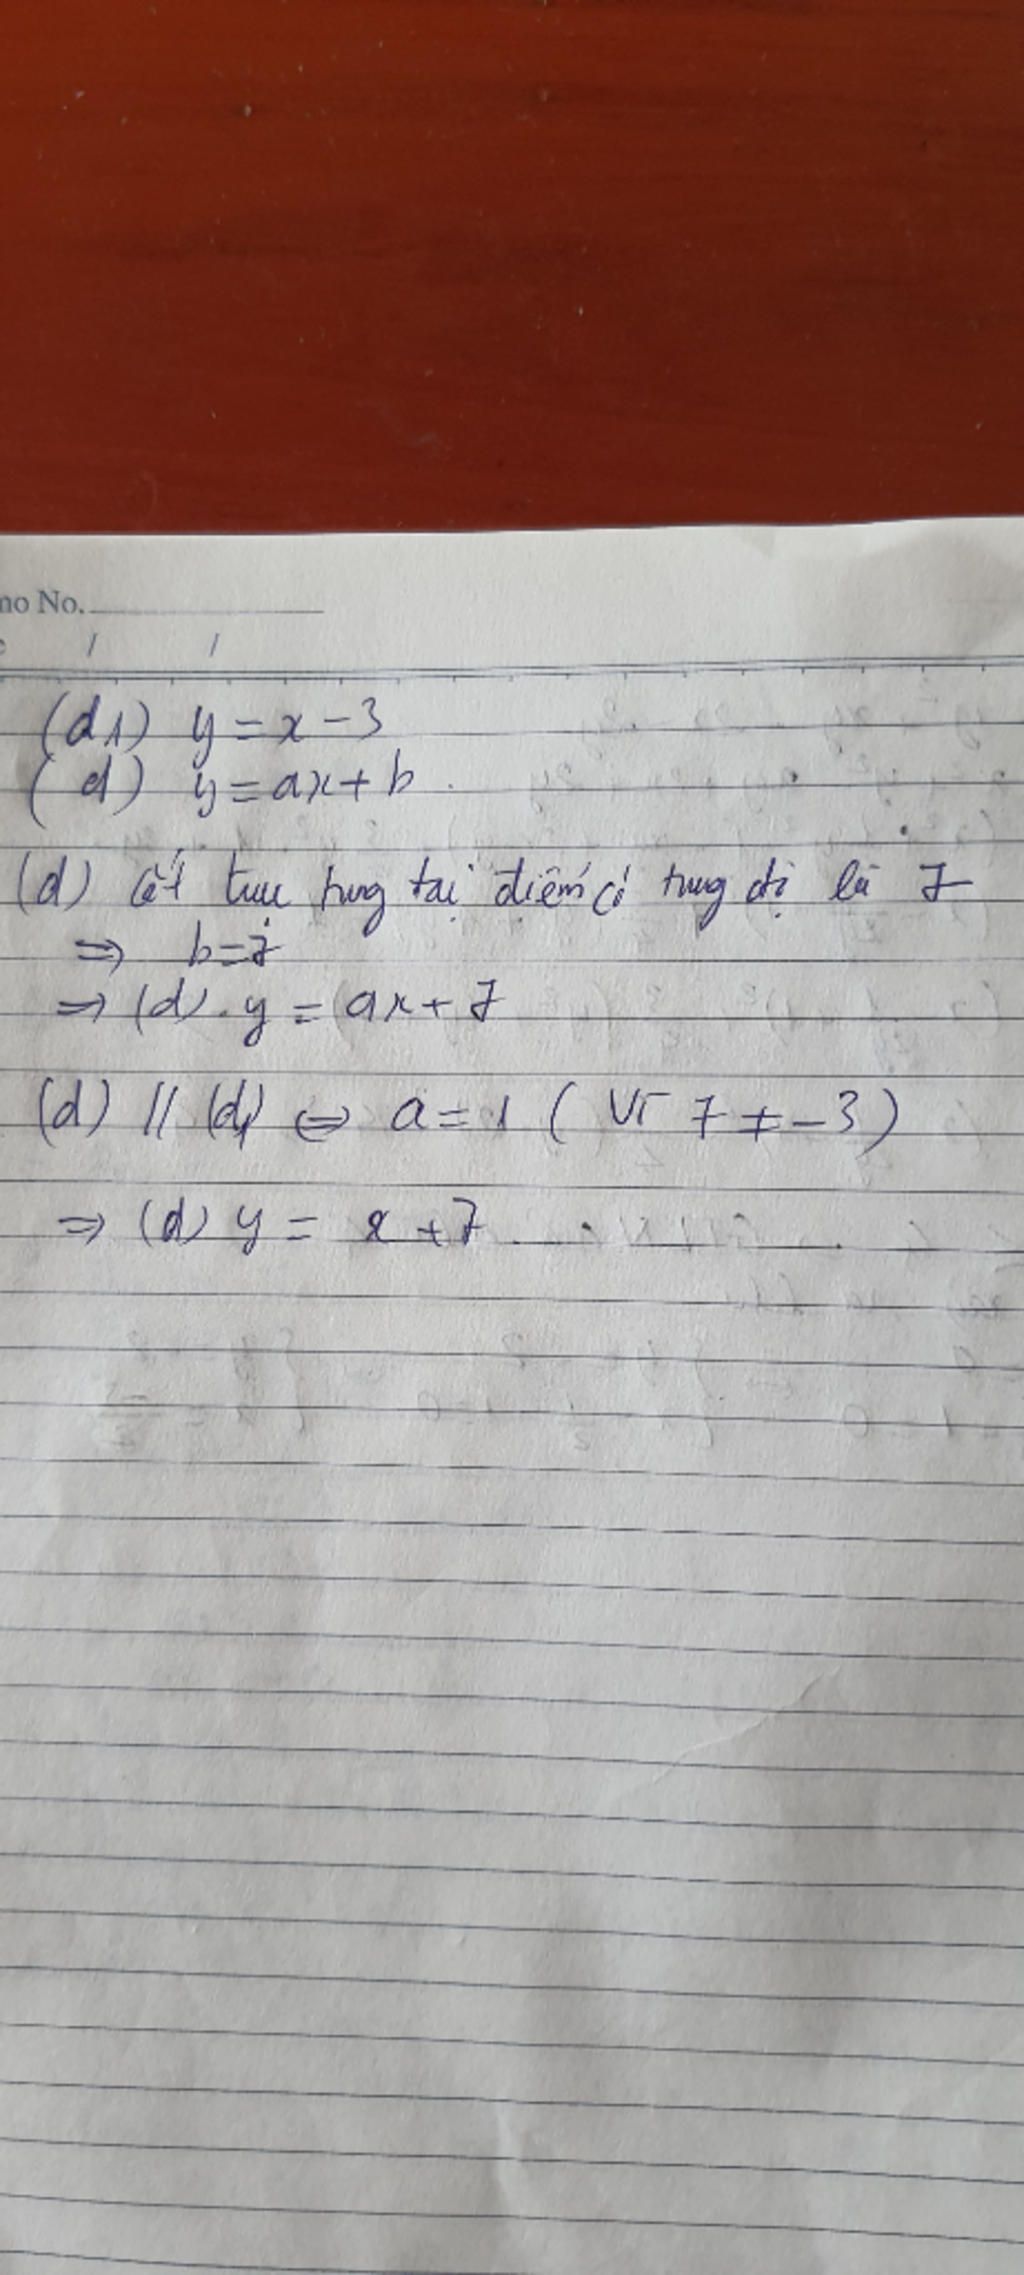 no No.
/ /
(d1) y = x - 3
(d) y = ax + b
(d) cắt trục tung tại điểm có tung độ là 7
=> b = 7
=> (d) y = ax + 7
(d) // (d1) <=> a = 1 ( Vì 7 ≠ -3 )
=> (d) y = x + 7